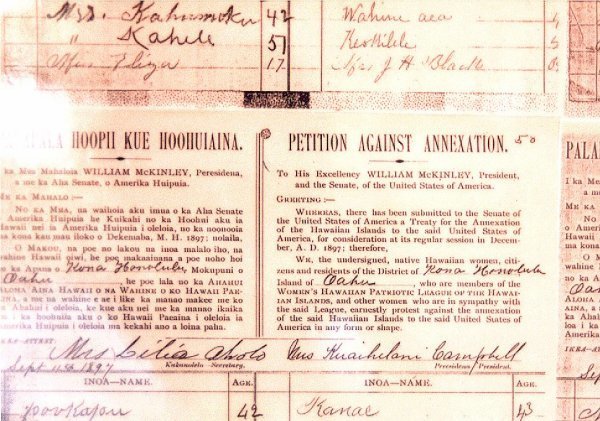 Mrs. Kahumoku 42 Wahine aea
" Kahele 51
Miss Eliza 17 Mrs J H Black
HOOPII KUE HOOHUIAINA.
ka Mea Mahaloia WILLIAM McKINLEY, Peresidena,
a me ka Aha Senate, o Amerika Huipuia.
ME KA MAHALO:—
No KA MEA, ua waihoia aku imua o ka Aha Senate
Amerika Huipuia he Kuikahi no ka Hoohui aku ia
Hawaii nei ia Amerika Huipuia i oleloia, no ka noonooia
ma kona kau mau iloko o Dekemaba, M. H. 1897; nolaila,
O MAKOU, na poe no lakou na inoa malalo iho, he
wahine Hawaii oiwi, he poe makaainana a he poe noho hoi
o ka Apana o Kona Honolulu, Mokupuni o
Oahu, he poe lala no ka AHAHUI
ALOHA AINA HAWAII O NA WAHINE O KO HAWAII PAE-
AINA, a me na wahine e ae i like ka manao makee me ko
Ahahui i oleloia, ke kue aku nei me ka manao ikaika
ka hoohuiia aku o ko Hawaii Paeaina i oleloia
Amerika Huipuia i oleloia ma kekahi ano a loina paha.
IKEA-ATTEST:
Mrs Lilia Aholo
Sept 11th 1897 Kakauolelo—Secretary.
INOA—NAME. AGE.
42
PETITION AGAINST ANNEXATION. 50
To His Excellency WILLIAM McKINLEY, President,
and the Senate, of the United States of America.
GREETING:—
WHEREAS, there has been submitted to the Senate of
the United States of America a Treaty for the Annexation
of the Hawaiian Islands to the said United States of
America, for consideration at its regular session in Decem-
ber, A. D. 1897; therefore,
WE, the undersigned, native Hawaiian women, citi-
zens and residents of the District of Kona Honolulu
Island of Oahu, who are members of the
WOMEN'S HAWAIIAN PATRIOTIC LEAGUE OF THE HAWAI-
IAN ISLANDS, and other women who are in sympathy with
the said League, earnestly protest against the annexation
of the said Hawaiian Islands to the said United States of
America in any form or shape.
Mrs Kuaihelani Campbell
Peresidena-President.
INOA—NAME. AGE.
Kanae 43
PALA
I ka Mea
a me
ME KA